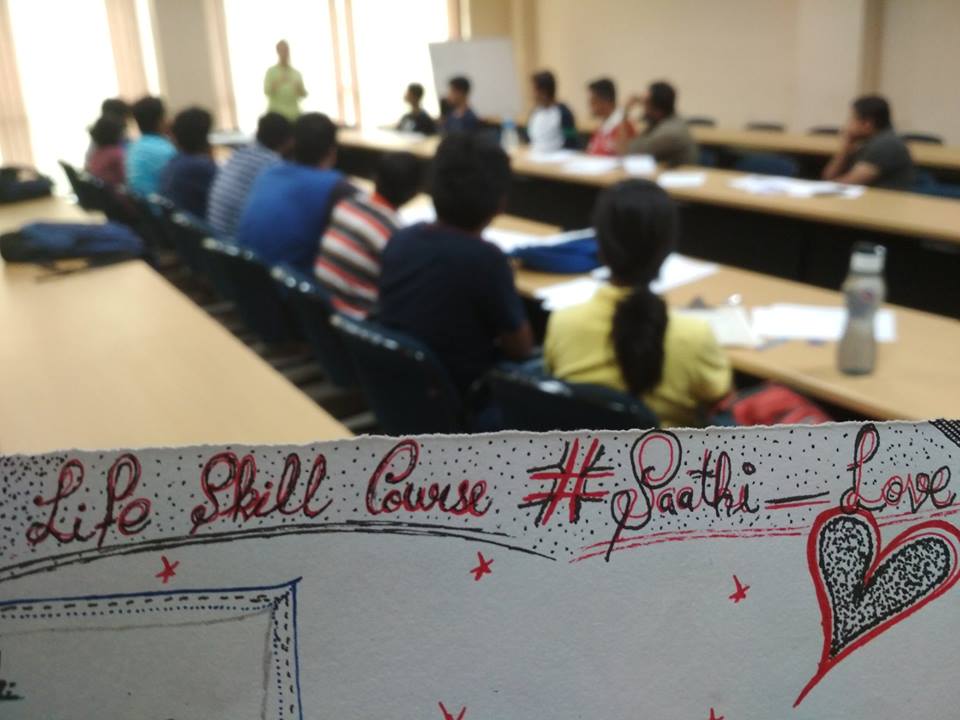 Life Skill Course #Saathi_Love